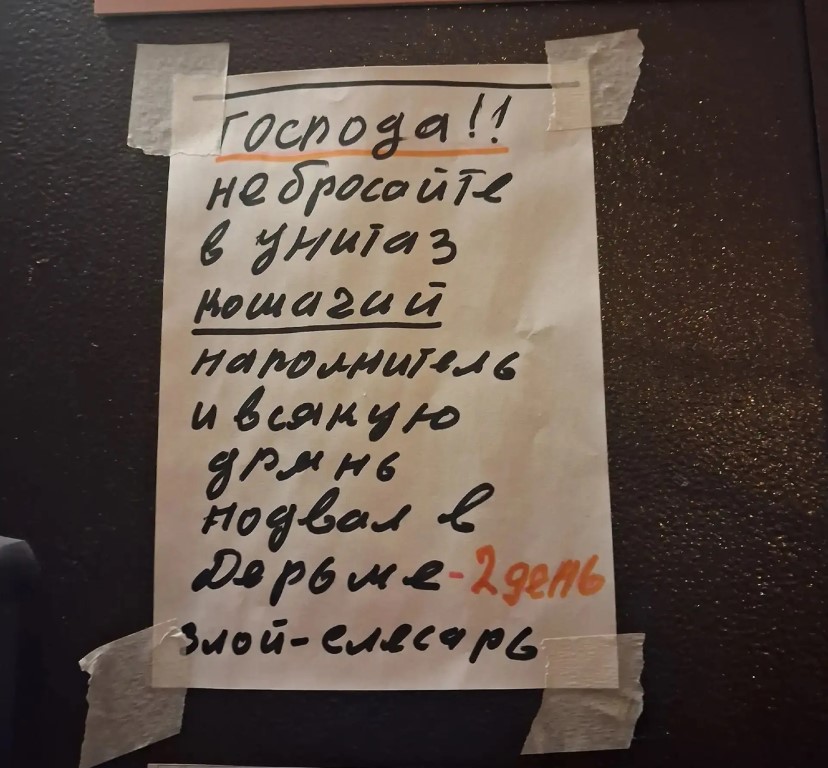 Господа!!
не бросайте
в унитаз
кошачий
наполнитель
и всякую
дрянь
подвал в
Дерьме-2 день
злой-слесарь